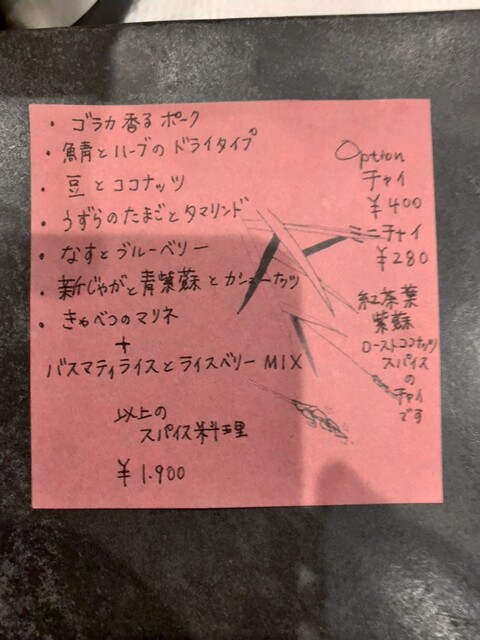 ・ゴラカ香るポーク
・鯖とハーブのドライタイプ
・豆とココナッツ
・うずらのたまごとタマリンド
・なすとブルーベリー
・新じゃがと青紫蘇とカシューナッツ
・きゃべつのマリネ
+
バスマティライスとライスベリーMIX
以上の
スパイス料理
¥1.900
Option
チャイ
¥400
ミニチャイ
¥280
紅茶葉
紫蘇
ローストココナッツ
スパイス
の
チャイ
です